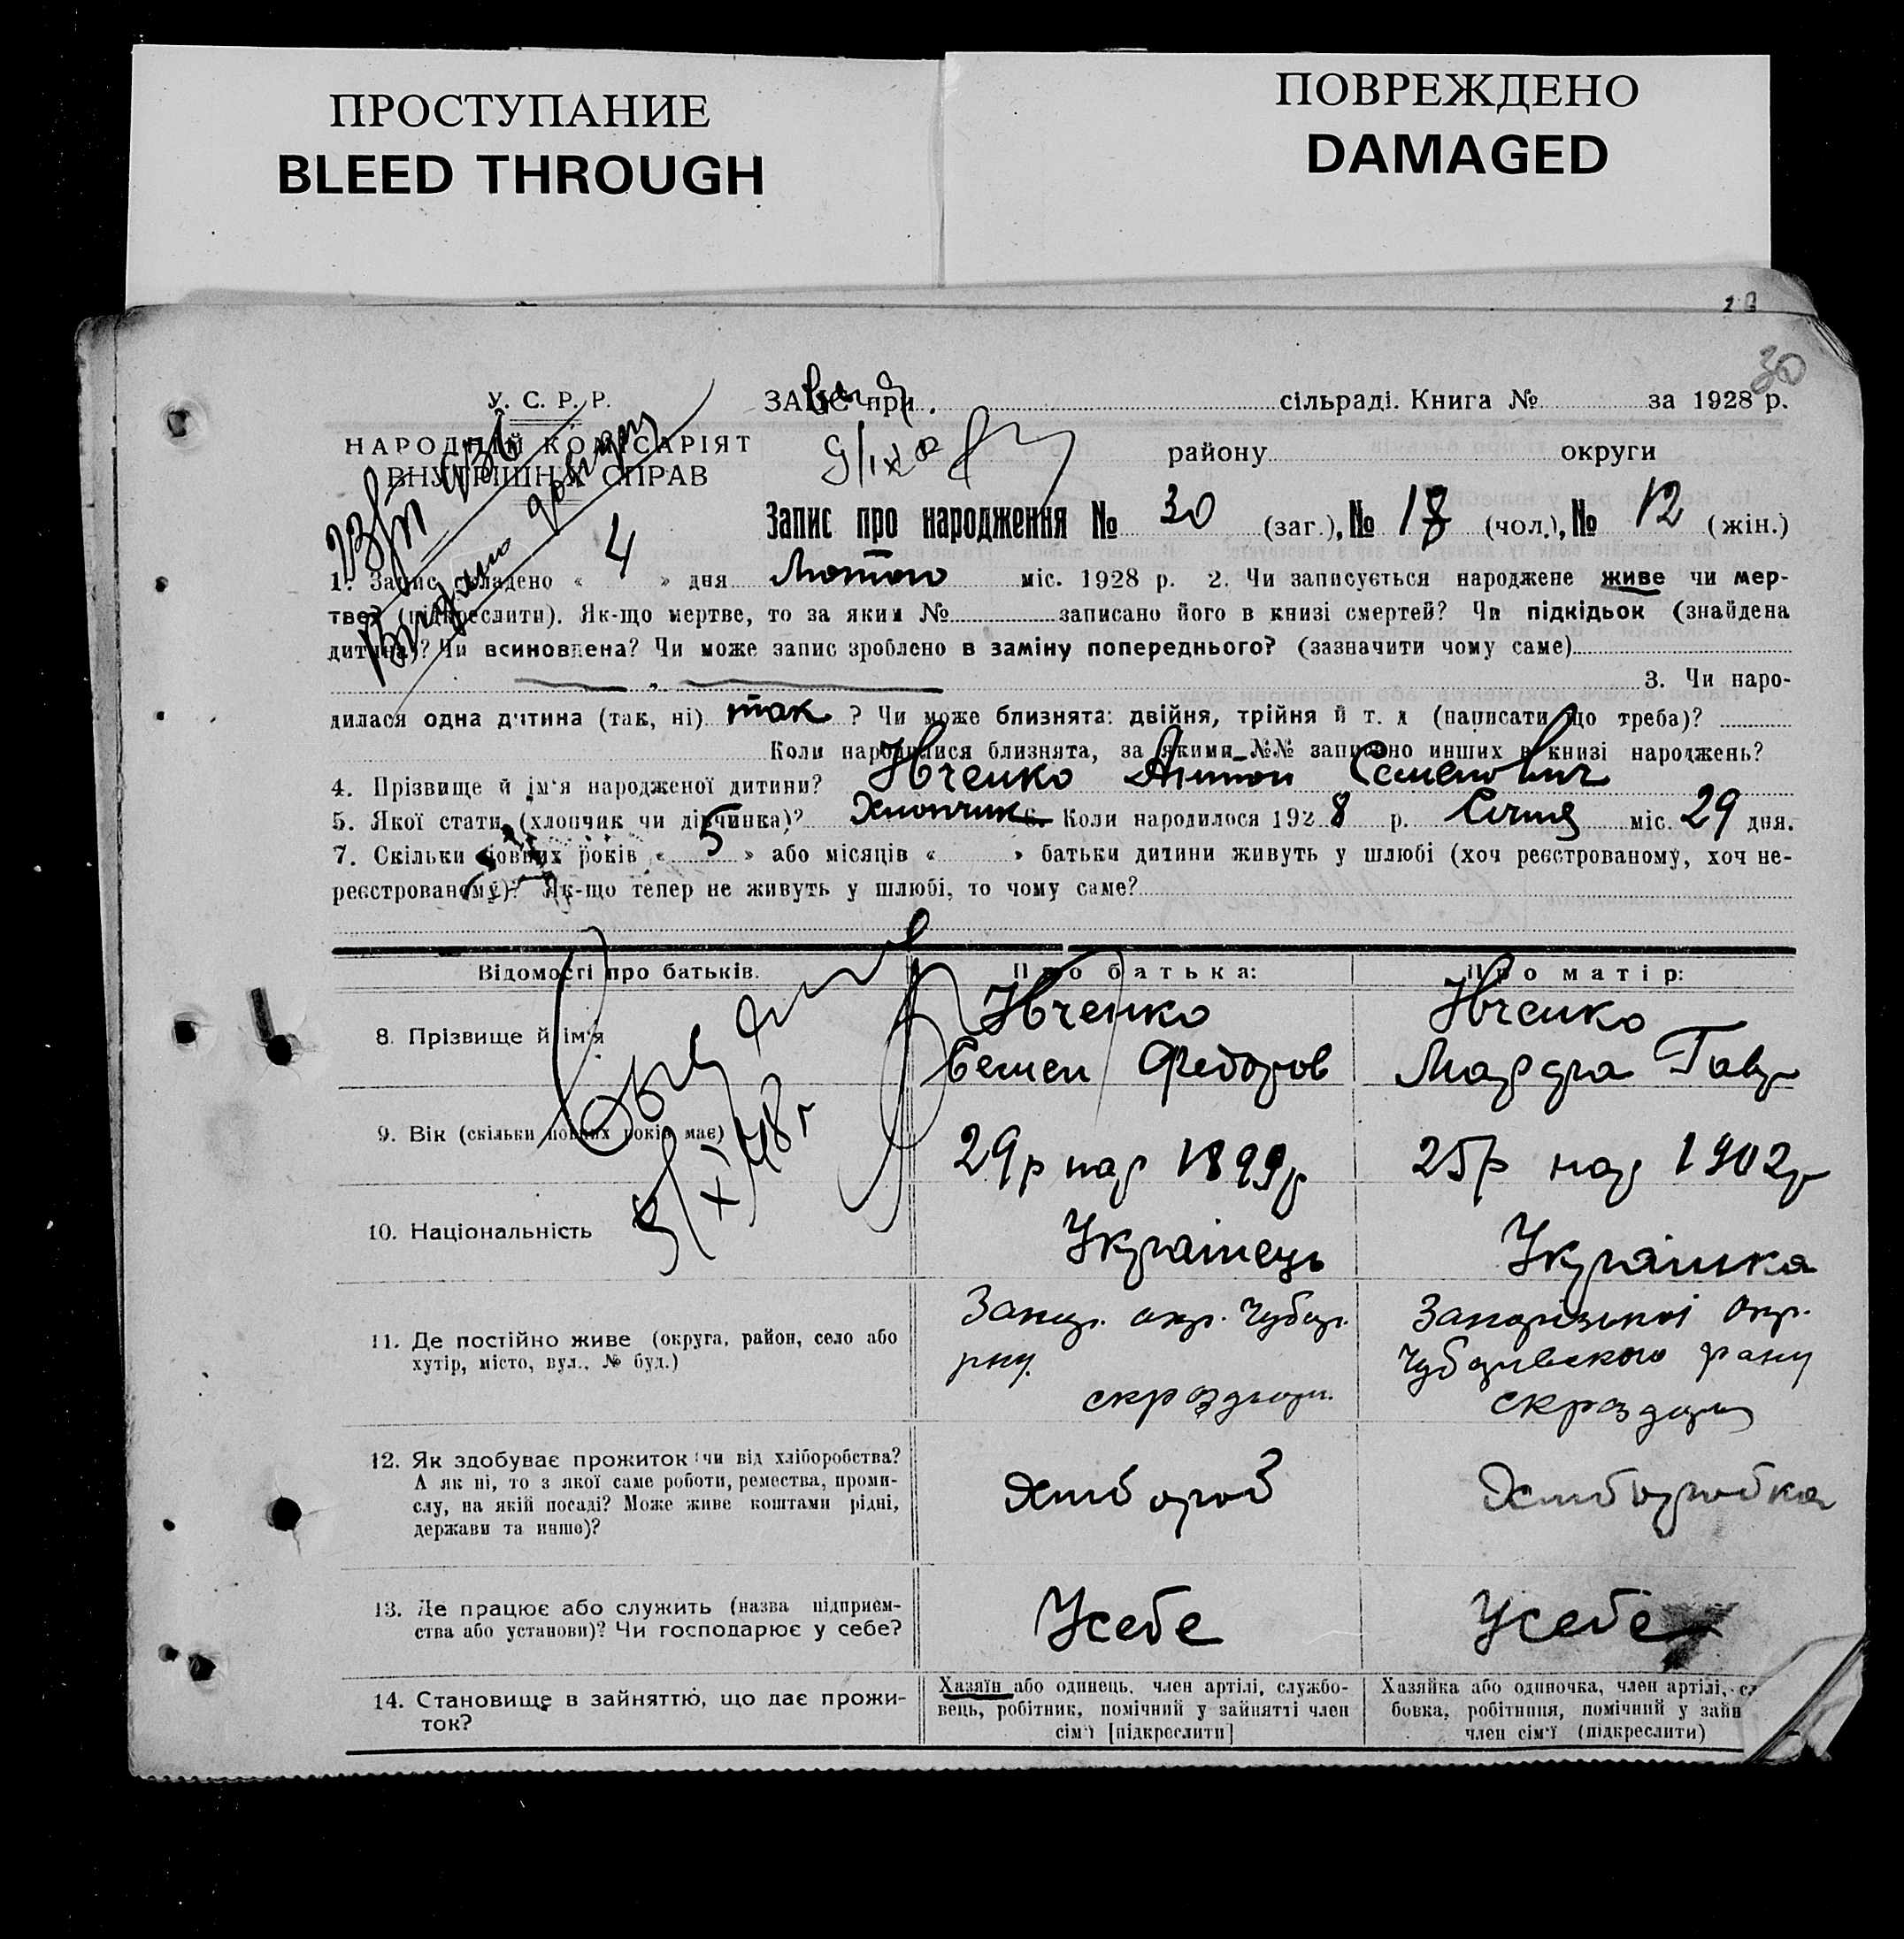 ПРОСТУПАНИЕ
BLEED THROUGH
ПОВРЕЖДЕНО
DAMAGED
30
У. С. Р. Р.
НАРОДНІЙ КОМІСАРІЯТ
ВНУТРІШНІХ СПРАВ
ЗАПИС при сільраді. Книга № за 1928 р.
району округи
Запис про народження № 30 (заг.), № 18 (чол.), № 12 (жін.)
1. Запис складено « 4 » дня Лютого міс. 1928 р. 2. Чи записується народжене живе чи мер-
тве? (підкреслити). Як-що мертве, то за яким № записано його в книзі смертей? Чи підкідьок (знайдена
дитина)? Чи всиновлена? Чи може запис зроблено в заміну попереднього? (зазначити чому саме)
3. Чи наро-
дилася одна дитина (так, ні) так ? Чи може близнята: двійня, трійня й т. д (написати що треба)?
Коли народилися близнята, за якими №№ записано инших в книзі народжень?
4. Прізвище й ім'я народженої дитини? Івченко Антон Семенович
5. Якої стати (хлопчик чи дівчинка)? Хлопчик 6. Коли народилося 192 8 р. Січня міс. 29 дня.
7. Скільки повних років « 5 » або місяців « » батьки дитини живуть у шлюбі (хоч реєстрованому, хоч не-
реєстрованому)? Як-що тепер не живуть у шлюбі, то чому саме?
Відомості про батьків. Про батька: Про матір:
8. Прізвище й ім'я
Івченко
Семен Федоров
Івченко
Мархва Гавр
9. Вік (скільки повних років має)
29р нар 1899р
25р нар 1902р
10. Національність
Українець
Українка
11. Де постійно живе (округа, район, село або
хутір, місто, вул., № буд.)
Запор. окр. Чубар.
рну.
Запорізької окр.
Чубарівського рану
12. Як здобуває прожиток (чи від хліборобства?
А як ні, то з якої саме роботи, ремества, проми-
слу, на якій посаді? Може живе коштами рідні,
держави та инше)?
Хлібороб
Хлібробка
13. Де працює або служить (назва підприєм-
ства або установи)? Чи господарює у себе?
Усебе
Усебе
14. Становище в зайняттю, що дає прожи-
ток?
Хазяїн або одинець, член артілі, службо-
вець, робітник, помічний у зайнятті член
сім'ї [підкреслити]
Хазяйка або одиночка, член артілі, с
бовка, робітниця, помічний у зайн
член сім'ї (підкреслити)